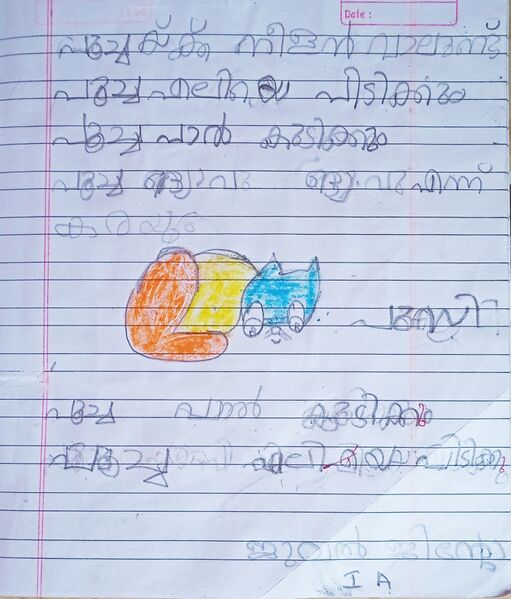 Date :
പൂച്ചയ്ക്ക് നീളൻ വാലുണ്ട്
പൂച്ച എലിയെ പിടിക്കും
പൂച്ച പാൽ കുടിക്കും
പൂച്ച മ്യാവൂ മ്യാവൂ എന്ന്
കരയും
പൂച്ച പാൽ കുടിക്കും
പൂച്ച എലിയെ പിടിക്കും
I A